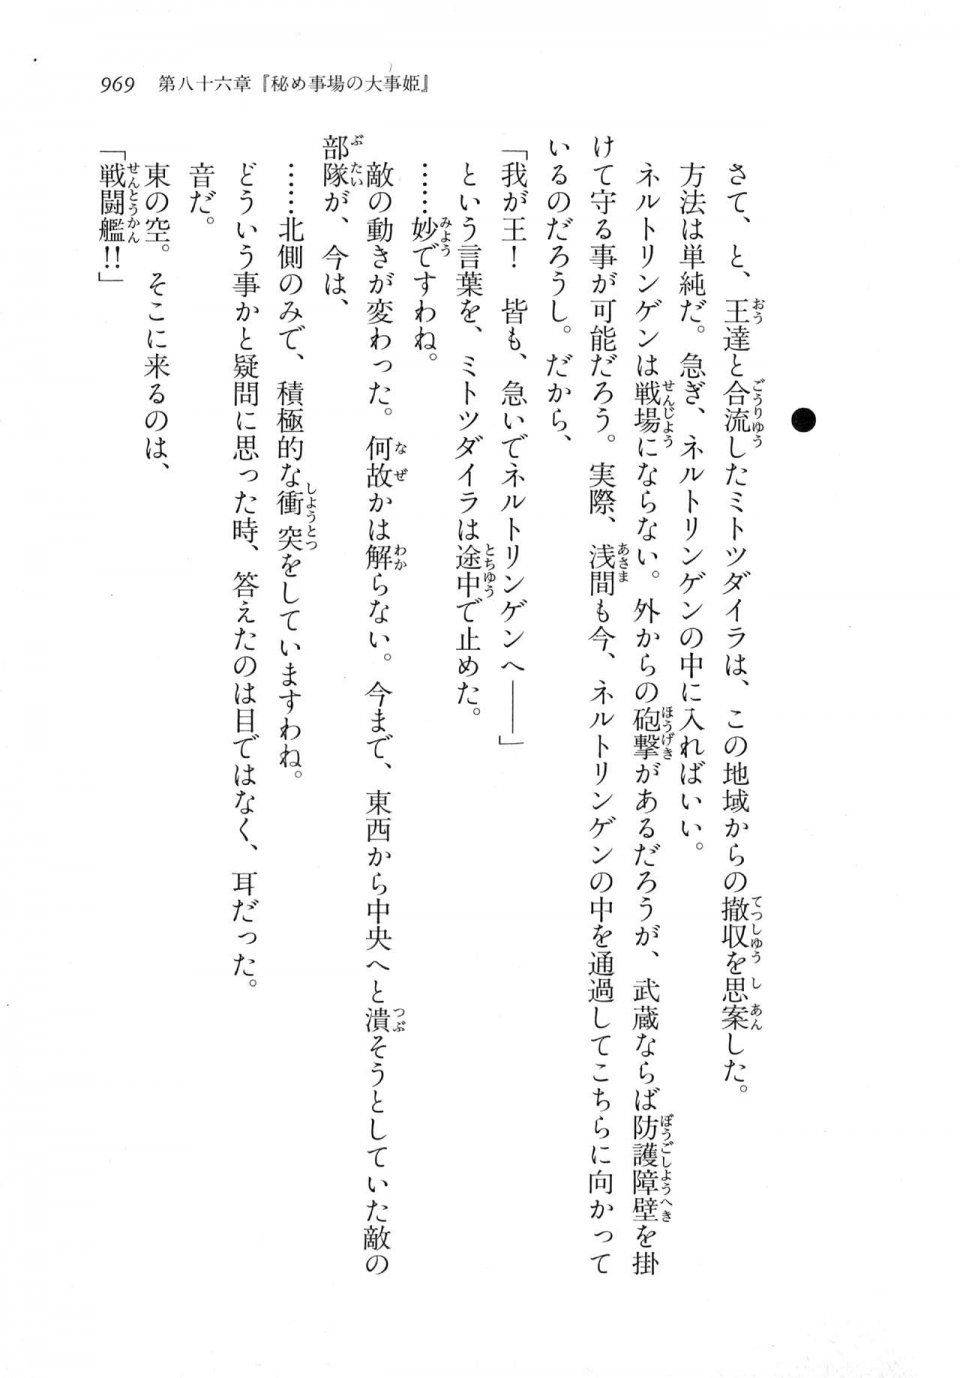 969　第八十六章『秘め事場の大事姫』
●
さて、と、王達と合流したミトツダイラは、この地域からの撤収を思案した。
方法は単純だ。急ぎ、ネルトリンゲンの中に入ればいい。
ネルトリンゲンは戦場にならない。外からの砲撃があるだろうが、武蔵ならば防護障壁を掛
けて守る事が可能だろう。実際、浅間も今、ネルトリンゲンの中を通過してこちらに向かって
いるのだろうし。だから、
「我が王！　皆も、急いでネルトリンゲンへ――」
という言葉を、ミトツダイラは途中で止めた。
……妙ですわね。
敵の動きが変わった。何故かは解らない。今まで、東西から中央へと潰そうとしていた敵の
部隊が、今は、
……北側のみで、積極的な衝突をしていますわね。
どういう事かと疑問に思った時、答えたのは目ではなく、耳だった。
音だ。
東の空。そこに来るのは、
「戦闘艦!!」